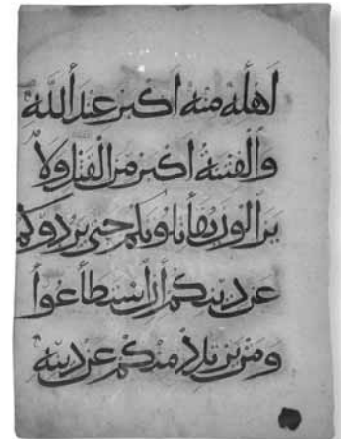 اهله منه اكبر عند الله
والفتنة اكبر من القتل ولا
يزالون يقاتلونكم حتى يردوكم
عن دينكم ان استطاعوا
ومن يرتدد منكم عن دينه